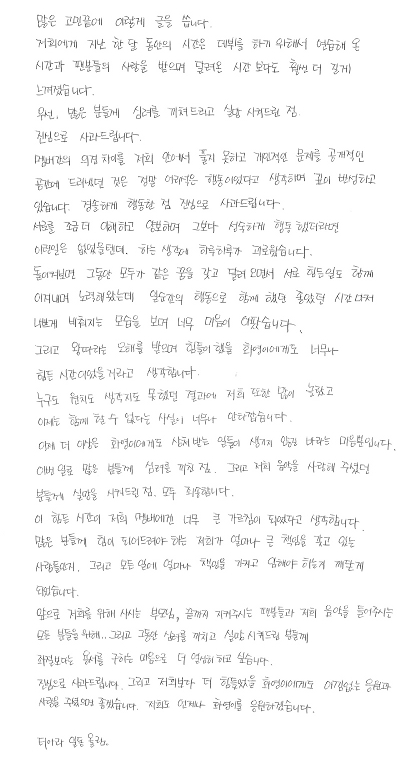 많은 고민끝에 이렇게 글을 씁니다.
저희에게 지난 한 달 동안의 시간은 데뷔를 하기 위해서 연습해 온
시간과 팬분들의 사랑을 받으며 달려온 시간 보다도 훨씬 더 길게
느껴졌습니다.
우선, 많은 분들께 심려를 끼쳐드리고 실망 시켜드린 점.
진심으로 사과드립니다.
멤버간의 의견 차이를 저희 안에서 풀지 못하고 개인적인 문제를 공개적인
공간에 드러냈던 것은 정말 어리석은 행동이었다고 생각하며 깊이 반성하고
있습니다. 경솔하게 행동한 점 진심으로 사과드립니다.
서로를 조금 더 이해하고 양보하며 그보다 성숙하게 행동 했더라면
이런일은 없었을텐데. 하는 생각에 하루하루가 괴로웠습니다.
돌이켜보면 그동안 모두가 같은 꿈을 갖고 달려 오면서 서로 힘든일도 함께
이겨내며 노력해왔는데 일순간의 행동으로 함께 했던 좋았던 시간마저
나쁘게 비춰지는 모습을 보며 너무 마음이 아팠습니다.
그리고 왕따라는 오해를 받으며 힘들어 했을 화영이에게도 너무나
힘든 시간이었을거라고 생각합니다.
누구도 원치도 생각지도 못했던 결과에 저희 또한 많이 놀랐고
이제는 함께 할 수 없다는 사실이 너무나 안타깝습니다.
이제 더 이상은 화영이에게도 상처 받는 일들이 생기지 않길 바라는 마음뿐입니다.
이번 일로 많은 분들께 심려를 끼친 점. 그리고 저희 음악을 사랑해 주셨던
분들께 실망을 시켜드린 점. 모두 죄송합니다.
이 힘든 시간이 저희 멤버에겐 너무 큰 가르침이 되었다고 생각합니다.
많은 분들께 힘이 되어드려야 하는 저희가 얼마나 큰 책임을 갖고 있는
사람들인지. 그리고 모든일에 얼마나 책임을 가지고 임해야 하는지 깨닫게
되었습니다.
앞으로 저희를 위해 사시는 부모님, 끝까지 지켜주시는 팬분들과 저희 음악을 들어주시는
모든 분들을 위해... 그리고 그동안 심려를 끼치고 실망 시켜드린 분들께
화답보다는 용서를 구하는 마음으로 더 열심히 하고 싶습니다.
진심으로 사과드립니다. 그리고 저희보다 더 힘들었을 화영이에게도 아낌없는 응원과
사랑을 주셨으면 좋겠습니다. 저희도 언제나 화영이를 응원하겠습니다.
티아라 일동 올림.